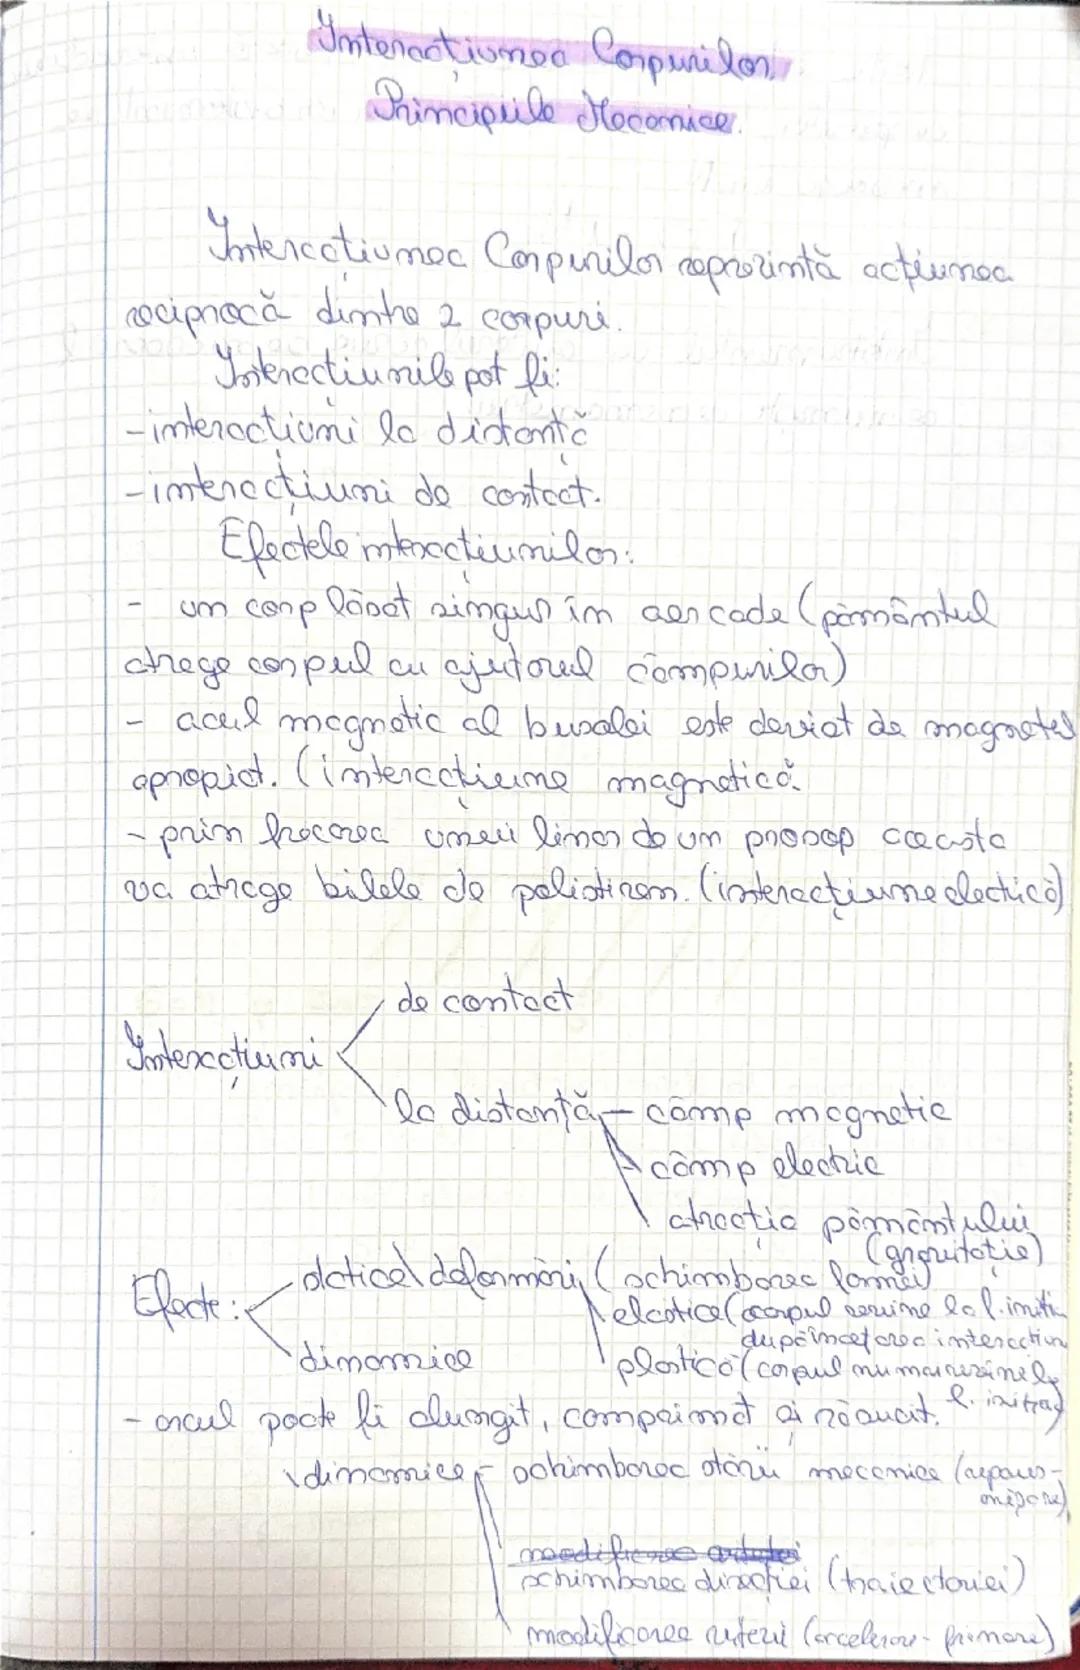 Interacțiunea Corpurilor.
Principiile Mecanice.
Interacțiunea Corpurilor reprezintă acțiunea
reciprocă dintre 2 corpuri.
Interacțiunile pot fi:
- interacțiuni la distanță
- interacțiuni de contact.
Efectele interacțiunilor:
- un corp lăsat singur în aer cade (pământul
atrage corpul cu ajutorul câmpurilor)
- acul magnetic al busolei este deviat de magnetul
apropiat. (interacțiune magnetică.
- prin frecarea unei liner de un prosop aceasta
va atrage bilele de polistiren. (interacțiune electrică)
de contact
Interacțiuni
la distanță - câmp magnetic
câmp electric
atracția pământului
(gravitație)
Efecte: statice deformări (schimbarea formei)
elastice (corpul revine la f. iniția
după încetarea interacțiun
dinamice
plastică (corpul nu mai revine la
f. inițială
- arcul poate fi alungit, comprimat și răsucit.
dinamice - schimbarea stării mecanice (repaus-
mișcare)
schimbarea direcției (traiectoriei)
modificarea vitezei (accelerare - frânare)